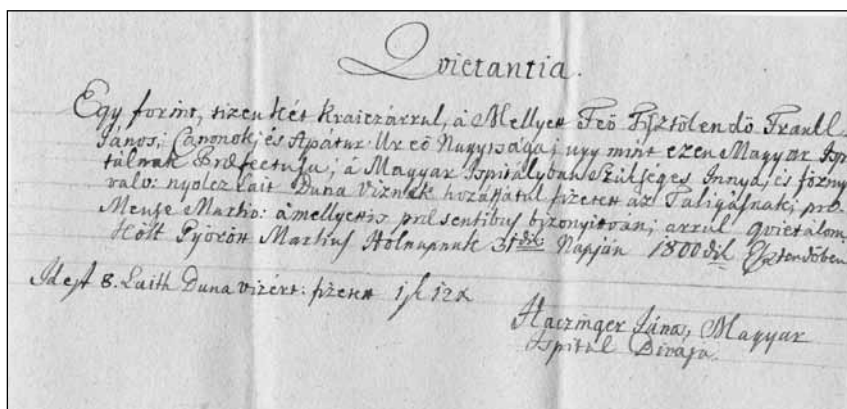 Qvietantia.
Egy forint, tizen két Kraiczárrul, à Mellyet Feö Tisztölendö Trautl
János; Canonok; és Apátur Ur eö Nagysága; ugy mint ezen Magyar Isp
tálnak Præfectusa; à Magyar Ispitályban szükséges Innya; és fözny
valo: nyolcz Lait Duna Viznek hozássátul fizetett az Taligásnak; pro
Mense Martio: à mellyettis præsentibus bizonyitván; arrul qvietálom,
Költ Györött Martius Holnapnak 31dik Napján 1800dik Esztendöben
Idest 8. Laith Duna vizért: fizetett 1 f 12 x
Haczinger János, Magyar
Ispitál Birája.